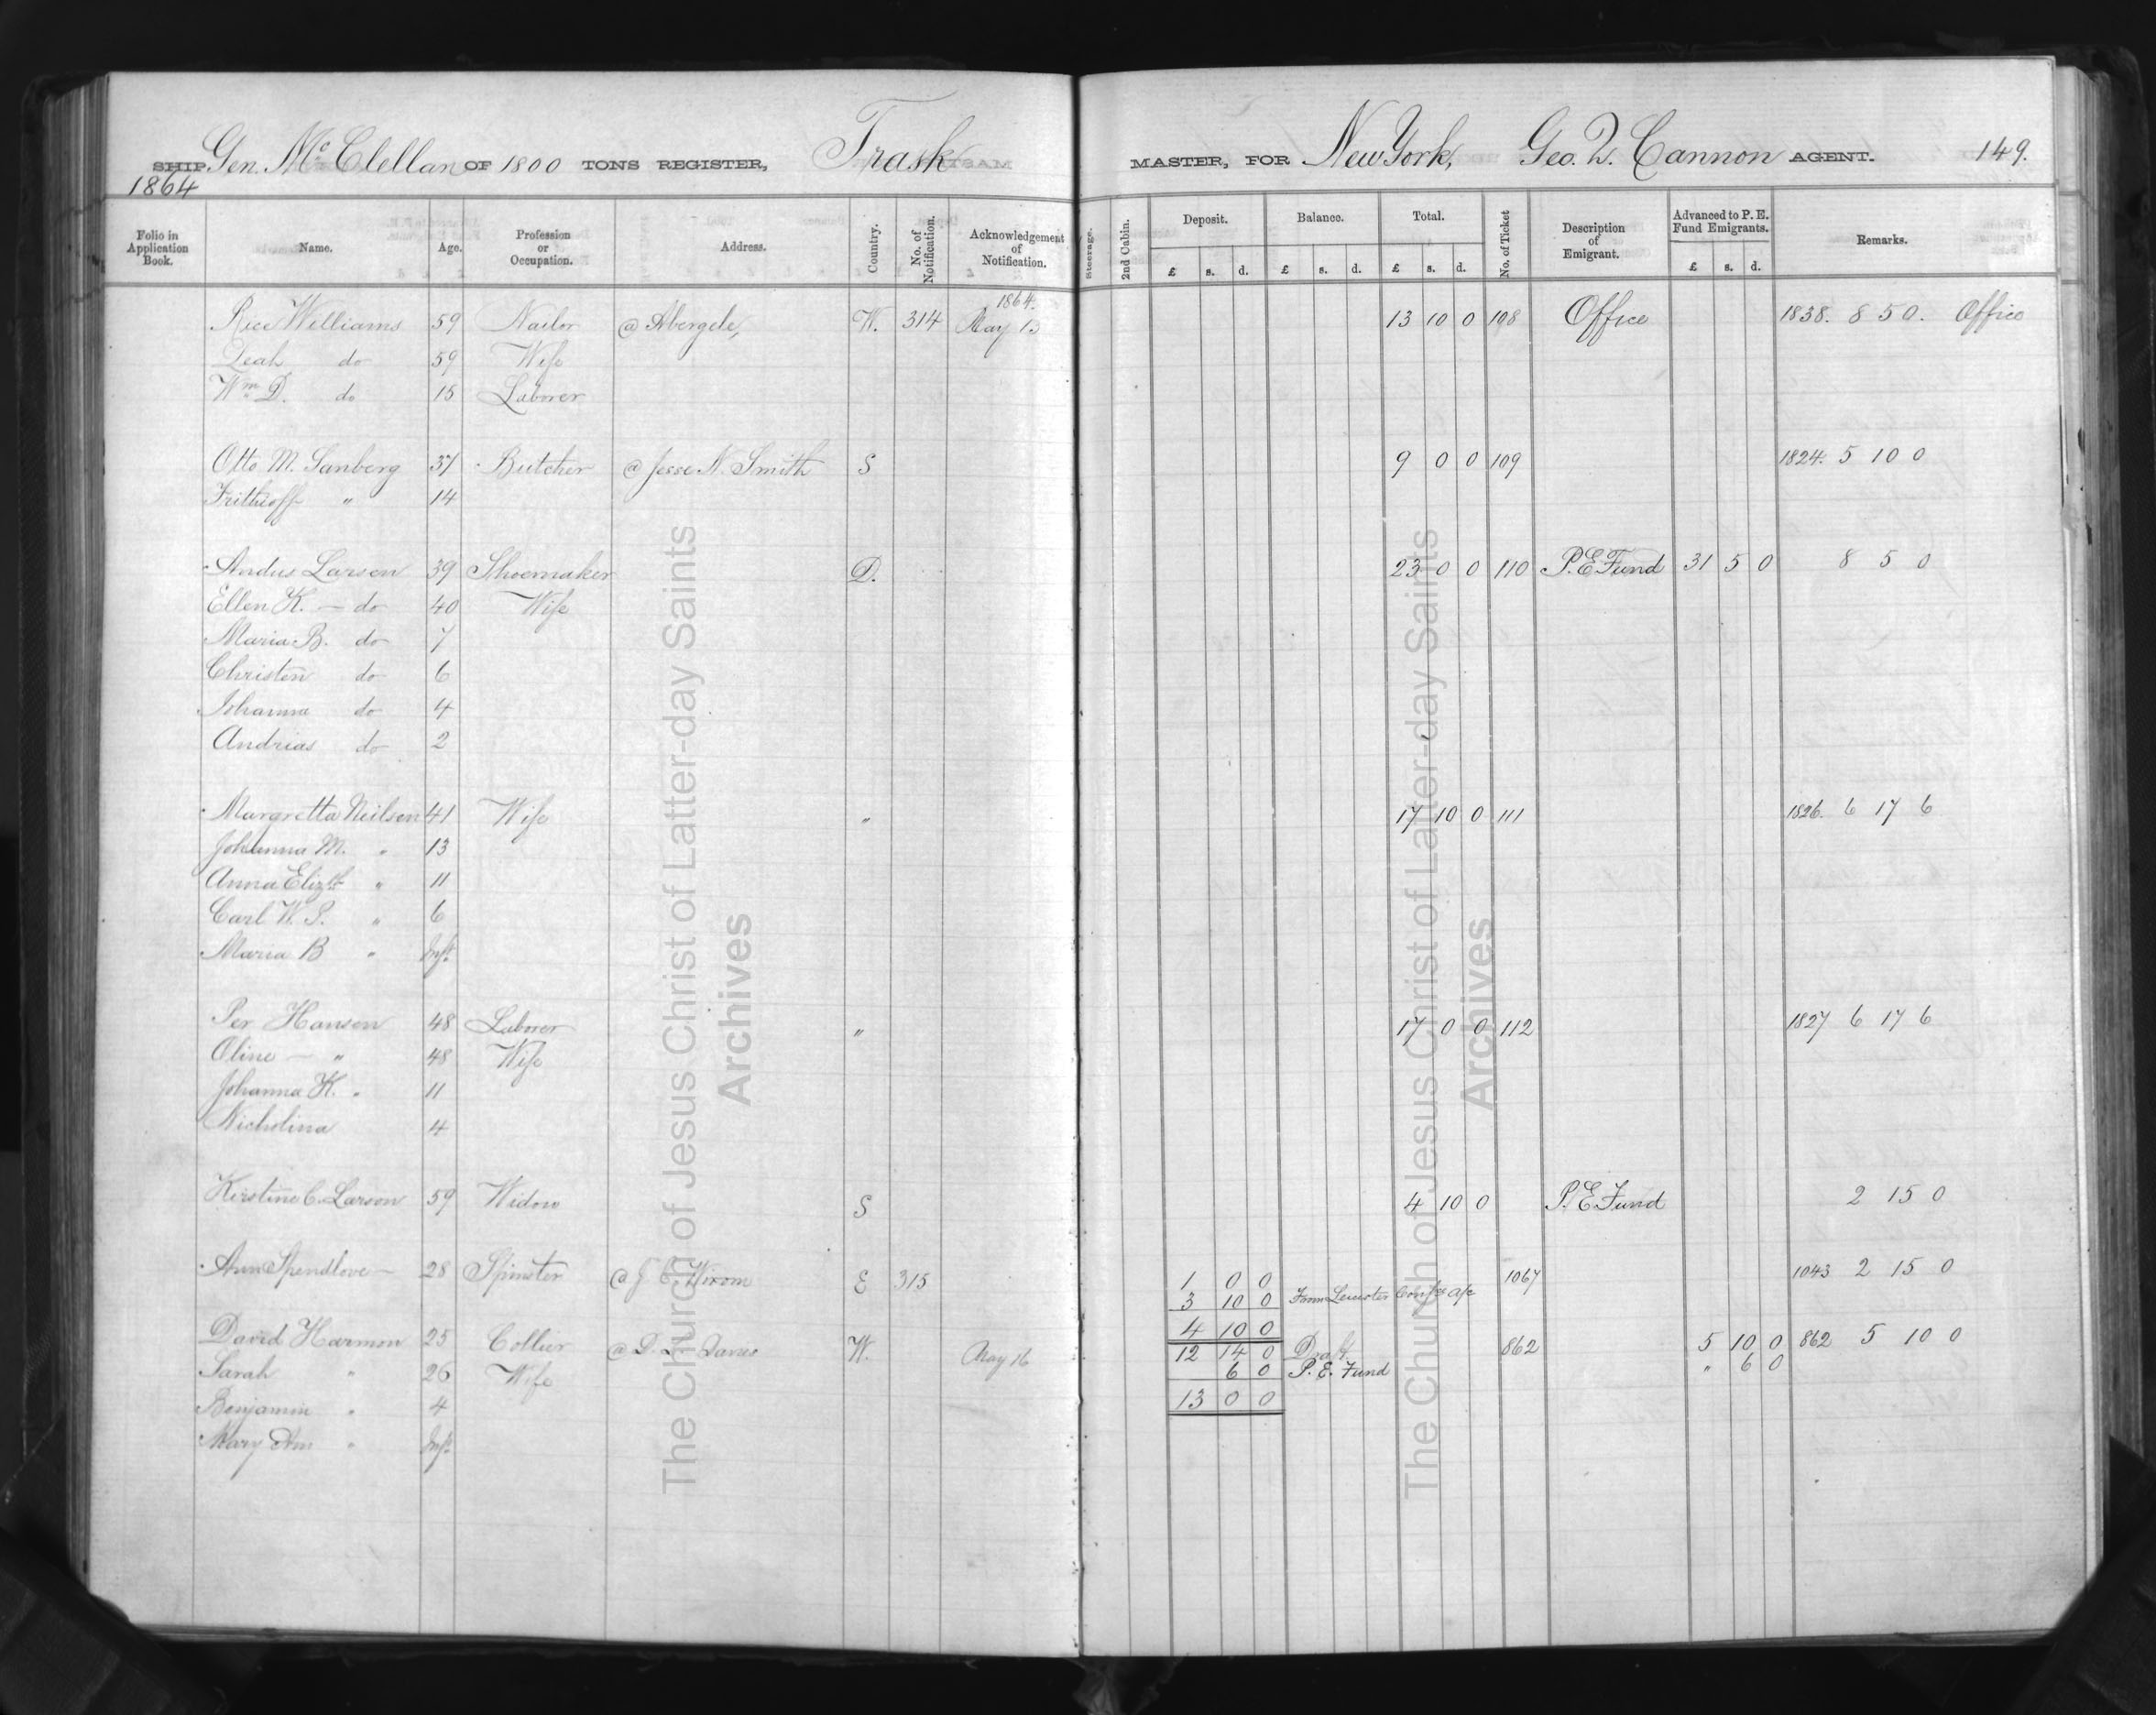 SHIP Gen. McClellan OF 1800 TONS REGISTER, Trask MASTER, FOR New York, Geo. Q. Cannon AGENT. 149.
1864
Folio in Application Book. Name. Age. Profession or Occupation. Address. Country. No. of Notification. Acknowledgement of Notification. Steerage. 2nd Cabin. Deposit. £ s. d. Balance. £ s. d. Total. £ s. d. No. of Ticket Description of Emigrant. Advanced to P. E. Fund Emigrants. £ s. d. Remarks.
1864.
Rice Williams 59 Nailor @ Abergele, W. 314 May 13 13 10 0 108 Office 1838. 8 5 0. Office
Leah do 59 Wife
Wm D. do 15 Laborer
Otto M. Sanberg 37 Butcher @ Jesse N. Smith S 9 0 0 109 1824. 5 10 0
Frithioff " 14
Andus Larsen 39 Shoemaker D. 23 0 0 110 P. E Fund 31 5 0 8 5 0
Ellen K. — do 40 Wife
Maria B. do 7
Christen do 6
Johanna do 4
Andrias do 2
Margretta Neilsen 41 Wife " 17 10 0 111 1826. 6 17 6
Johanna M. " 13
Anna Elizth " 11
Carl W. P. " 6
Maria B " Inft.
Per Hansen 48 Laborer " 17 0 0 112 1827 6 17 6
Oline — " 48 Wife
Johanna K. " 11
Nicholina 4
Kirstine C. Larson 59 Widow S 4 10 0 P. E Fund 2 15 0
Ann Spendlove — 28 Spinster @ J Wixom E 315 1 0 0 1067 1043 2 15 0
3 10 0 From Leicester Confce a/c
4 10 0
David Harmon 25 Collier @ D. Davies W. May 16 12 14 0 Draft. 862 5 10 0 862 5 10 0
Sarah " 26 Wife 6 0 P. E. Fund " 6 0
Benjamin " 4 13 0 0
Mary Ann " Inft.
The Church of Jesus Christ of Latter-day Saints
Archives
The Church of Jesus Christ of Latter-day Saints
Archives